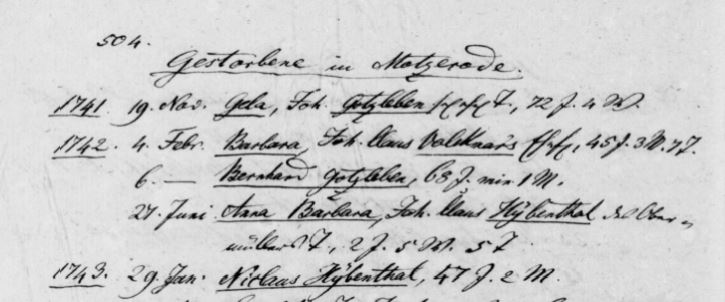 504.
Gestorbene in Motzerode.
1741 19. Nov. Gela, Joh. Gotzleben T., 72 J. 4 W.
1742. 4. Febr. Barbara, Joh. Claus Volcknar's Ehefr., 45 J. 3 M. 7 T.
6. — Bernhard Gotzleben, 63 J. min. 1 M.
27. Juni Anna Barbara, Joh. Claus Hÿbenthal des Ober-
müllers T., 2 J. 5 W. 5 T.
1743. 29. Jan. Niclaus Hÿbenthal, 47 J. 2 M.